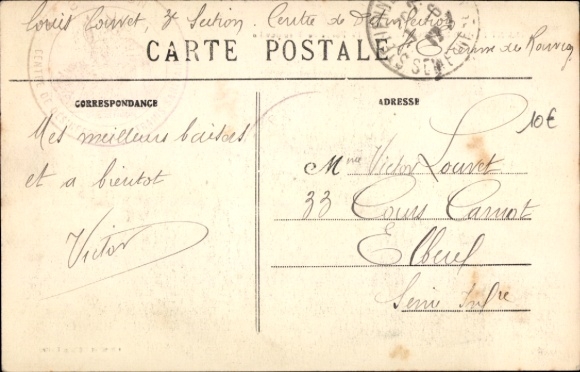 Louis Louvet, 3e Section. Centre de
St Etienne de Rouvray
CARTE POSTALE
CORRESPONDANCE
ADRESSE
10€
Mes meilleurs baisers
et a bientot
Victor
Mme Victor Louvet
33 Cours Carnot
Elbeuf
Seine Infre